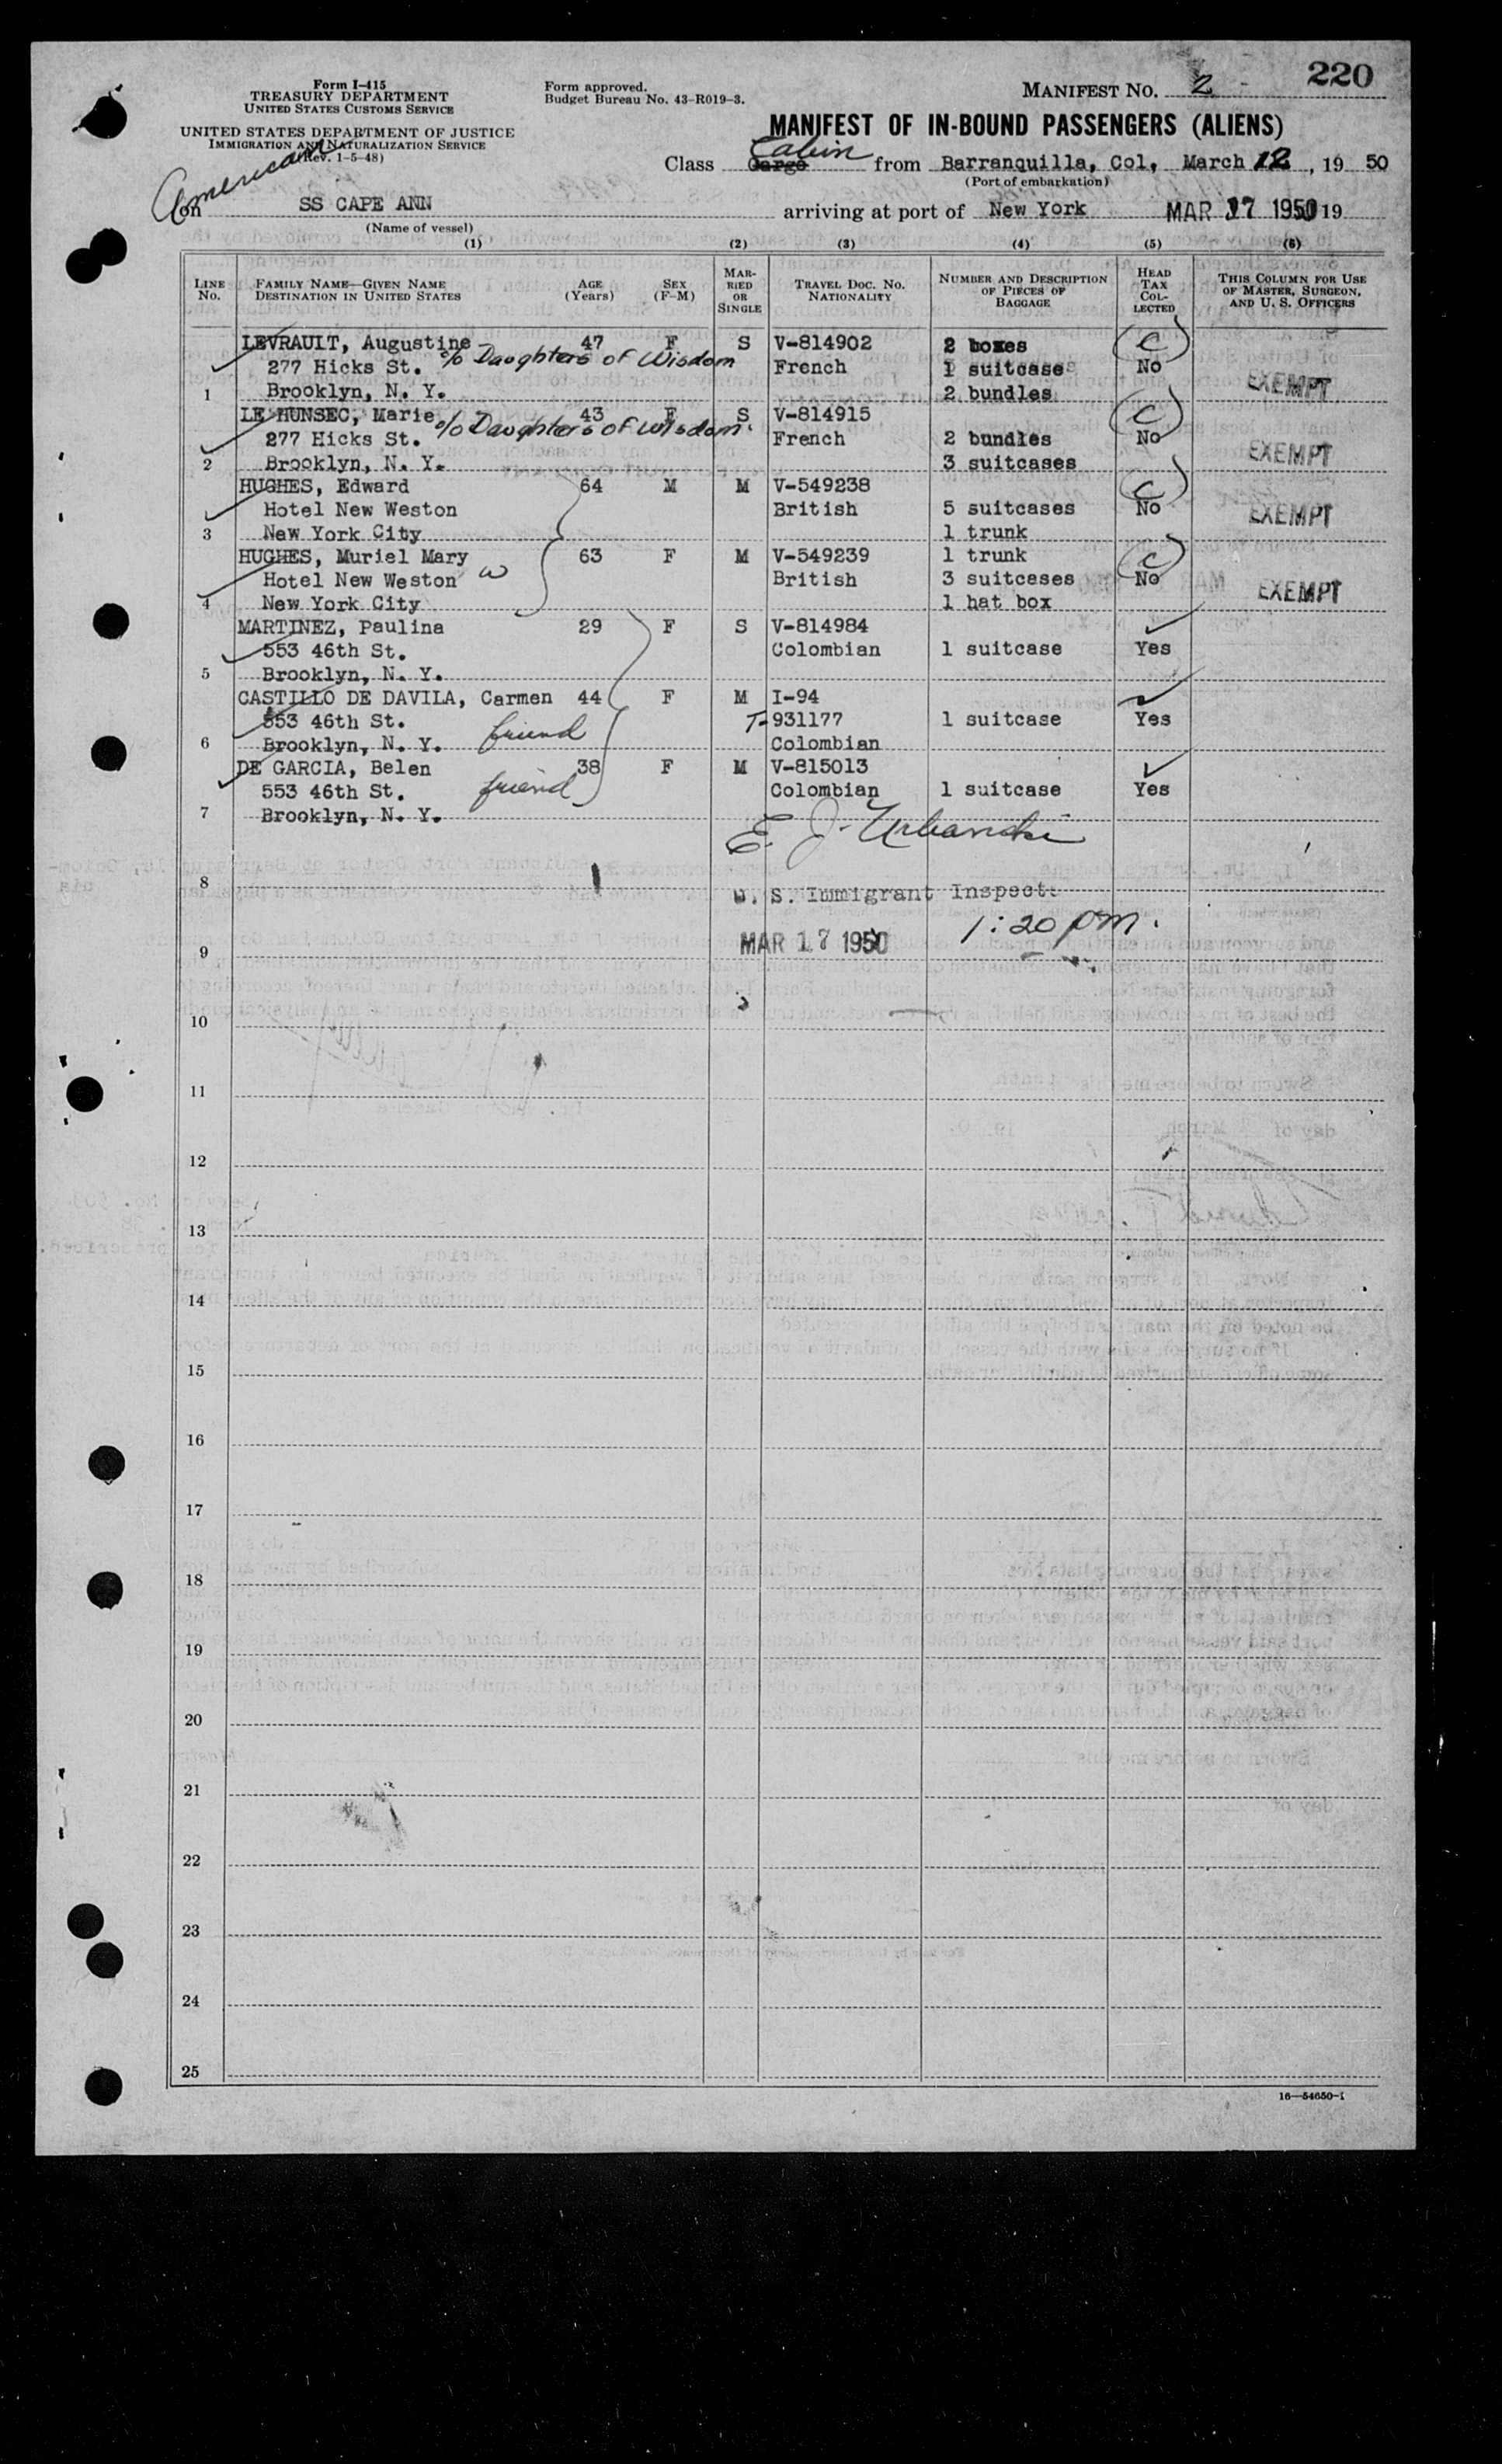 220
Form I-415
TREASURY DEPARTMENT
UNITED STATES CUSTOMS SERVICE
Form approved.
Budget Bureau No. 43-R019-3.
MANIFEST NO. 2
UNITED STATES DEPARTMENT OF JUSTICE
IMMIGRATION AND NATURALIZATION SERVICE
(Rev. 1-5-48)
MANIFEST OF IN-BOUND PASSENGERS (ALIENS)
Class Cargo Cabin from Barranquilla, Col, March 12, 19 50
(Port of embarkation)
American
on SS CAPE ANN arriving at port of New York MAR 17 1950 19
(Name of vessel)
(1) (2) (3) (4) (5) (6)
LINE No. FAMILY NAME—GIVEN NAME DESTINATION IN UNITED STATES AGE (Years) SEX (F-M) MARRIED OR SINGLE TRAVEL DOC. NO. NATIONALITY NUMBER AND DESCRIPTION OF PIECES OF BAGGAGE HEAD TAX COLLECTED THIS COLUMN FOR USE OF MASTER, SURGEON, AND U. S. OFFICERS
LEVRAULT, Augustine 47 F S V-814902 2 boxes C
277 Hicks St. c/o Daughters of Wisdom French 1 suitcase No EXEMPT
1 Brooklyn, N. Y. 2 bundles
LE HUNSEC, Marie 43 F S V-814915 C
277 Hicks St. c/o Daughters of Wisdom. French 2 bundles No EXEMPT
2 Brooklyn, N. Y. 3 suitcases
HUGHES, Edward 64 M M V-549238 C
Hotel New Weston British 5 suitcases No EXEMPT
3 New York City 1 trunk
HUGHES, Muriel Mary 63 F M V-549239 1 trunk C
Hotel New Weston w British 3 suitceses No EXEMPT
4 New York City 1 hat box
MARTINEZ, Paulina 29 F S V-814984
553 46th St. Colombian 1 suitcase Yes
5 Brooklyn, N. Y.
CASTILLO DE DAVILA, Carmen 44 F M I-94
553 46th St. friend T-931177 1 suitcase Yes
6 Brooklyn, N. Y. Colombian
DE GARCIA, Belen 38 F M V-815013
553 46th St. friend Colombian 1 suitcase Yes
7 Brooklyn, N. Y.
E. J. Urbanski
8 U. S. Immigrant Inspect.
9 MAR 17 1950 1:20 pm.
10
11
12
13
14
15
16
17
18
19
20
21
22
23
24
25
16—54650-1